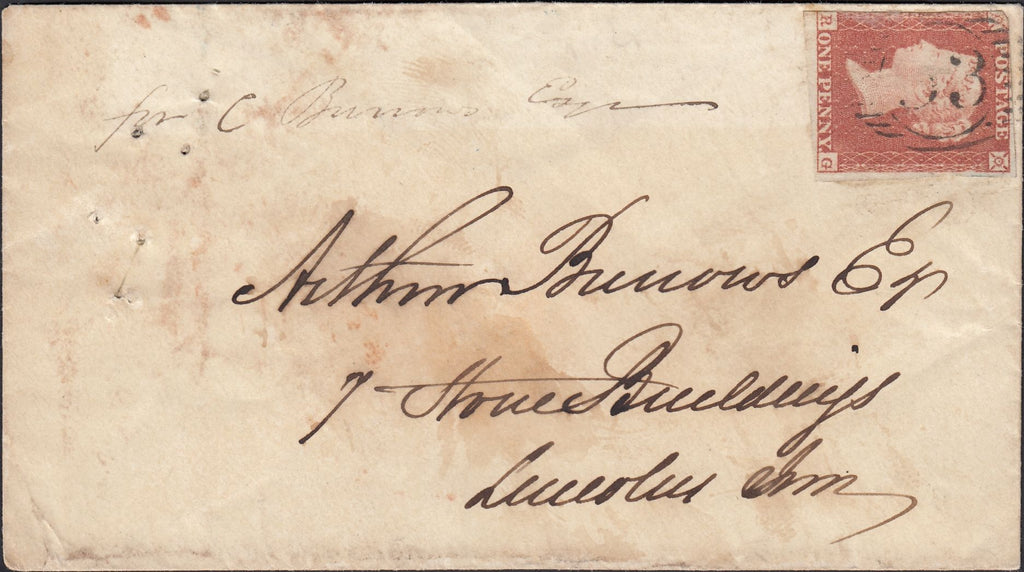 for C Burrows Esqr
Arthur Burrows Esq
7 Stone Buildings
Lincolns Inn
POSTAGE
ONE PENNY
R
G